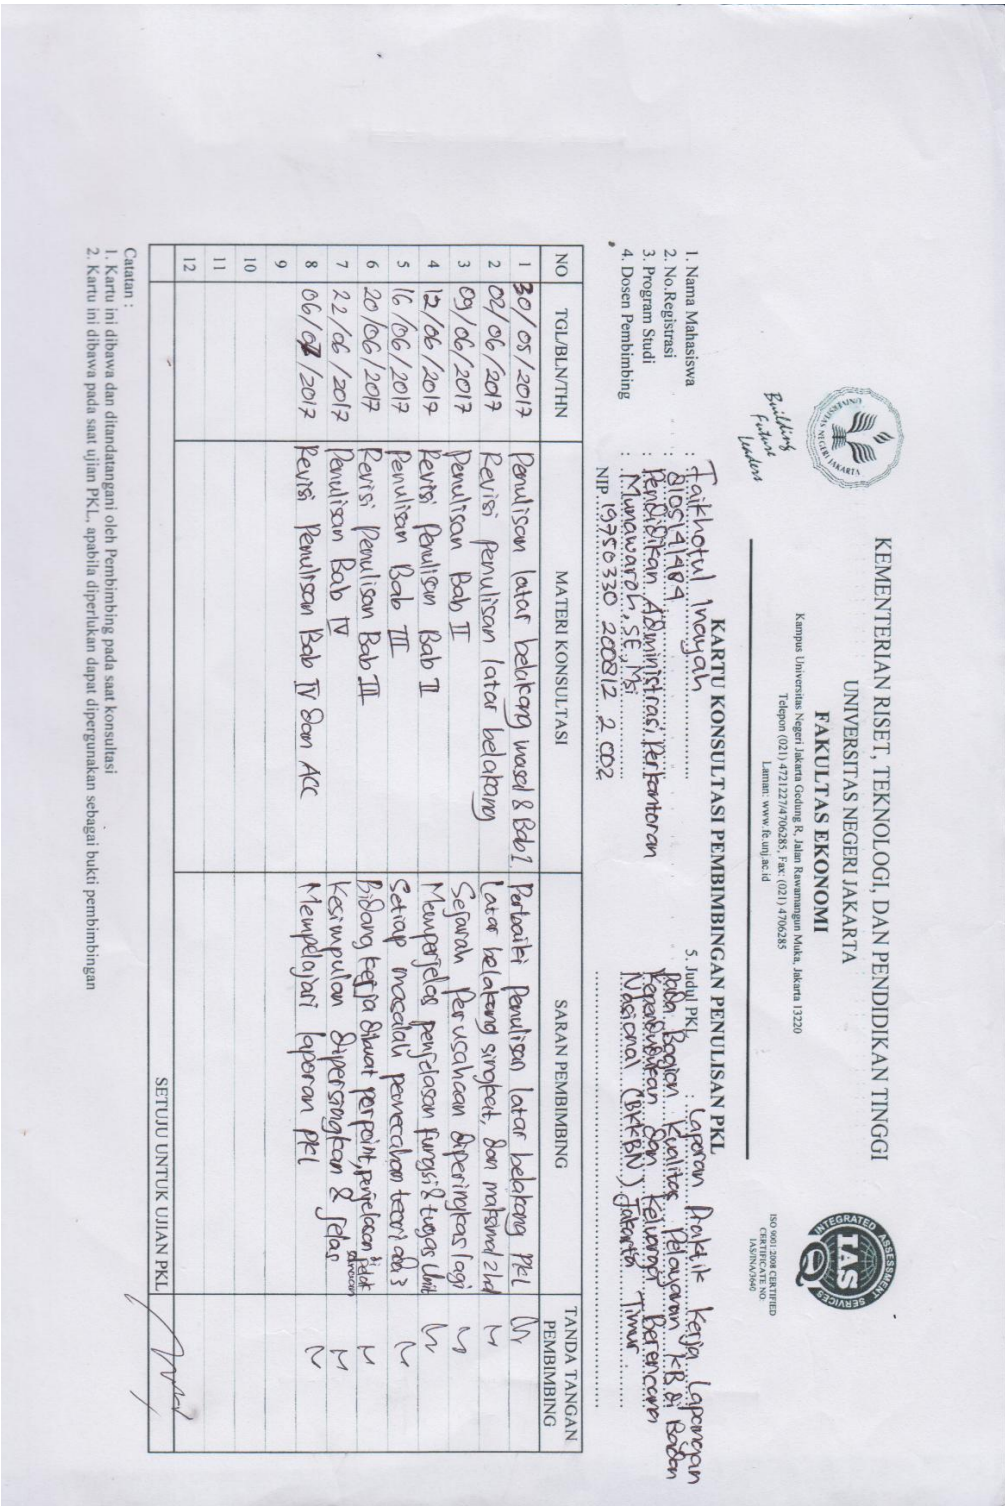 KEMENTERIAN RISET, TEKNOLOGI, DAN PENDIDIKAN TINGGI
UNIVERSITAS NEGERI JAKARTA
FAKULTAS EKONOMI
Kampus Universitas Negeri Jakarta Gedung R, Jalan Rawamangun Muka, Jakarta 13220
Telepon (021) 4721227/4706285, Fax: (021) 4706285
Laman: www.fe.unj.ac.id
UNIVERSITAS NEGERI JAKARTA
Building
Future
Leaders
INTEGRATED ASSESSMENT SERVICES
IAS
ISO 9001:2008 CERTIFIED
CERTIFICATE NO:
IAS/INA/3640
KARTU KONSULTASI PEMBIMBINGAN PENULISAN PKL
1. Nama Mahasiswa : Faikhotul Inayah
2. No.Registrasi : 8105141484
3. Program Studi : Pendidikan Administrasi Perkantoran
4. Dosen Pembimbing : Munawaroh, SE, Msi
NIP. 19750330 200812 2 002
5. Judul PKL : Laporan Praktik Kerja Lapangan
Pada Bagian Kualitas Pelayanan KB di Badan
Kependudukan dan Keluarga Berencana
Nasional (BKKBN) Jakarta Timur
NO TGL/BLN/THN MATERI KONSULTASI SARAN PEMBIMBING TANDA TANGAN PEMBIMBING
1 30/05/2017 Penulisan latar belakang masal & Bab I. Perbaiki penulisan latar belakang PKL
2 02/06/2017 Revisi penulisan latar belakang Latar belakang singkat, dan maksimal 2 hal
3 09/06/2017 Penulisan Bab II Sejarah Perusahaan diperingkas lagi
4 12/06/2017 Revisi Penulisan Bab II Memperjelas penjelasan fungsi & tugas Unit
5 16/06/2017 Penulisan Bab III Setiap masalah pemecahan teori ada 3
6 20/06/2017 Revisi Penulisan Bab III Bidang kerja dibuat perpoint, penjelasan
7 22/06/2017 Penulisan Bab IV Kesimpulan dipersingkat & jelas
8 06/07/2017 Revisi Penulisan Bab IV dan ACC Mempelajari laporan PKL
9
10
11
12
SETUJU UNTUK UJIAN PKL
Catatan :
1. Kartu ini dibawa dan ditandatangani oleh Pembimbing pada saat konsultasi
2. Kartu ini dibawa pada saat ujian PKL, apabila diperlukan dapat dipergunakan sebagai bukti pembimbingan